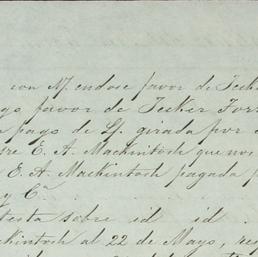 con N/ endose favor de Jecker
favor de Jecker Torr
pago de L/. girada por
E. A. Mackintosh que nos
E. A. Mackintosh pagada p
y Ca
sobre id id.
ckintosh al 22 de Mayo, re